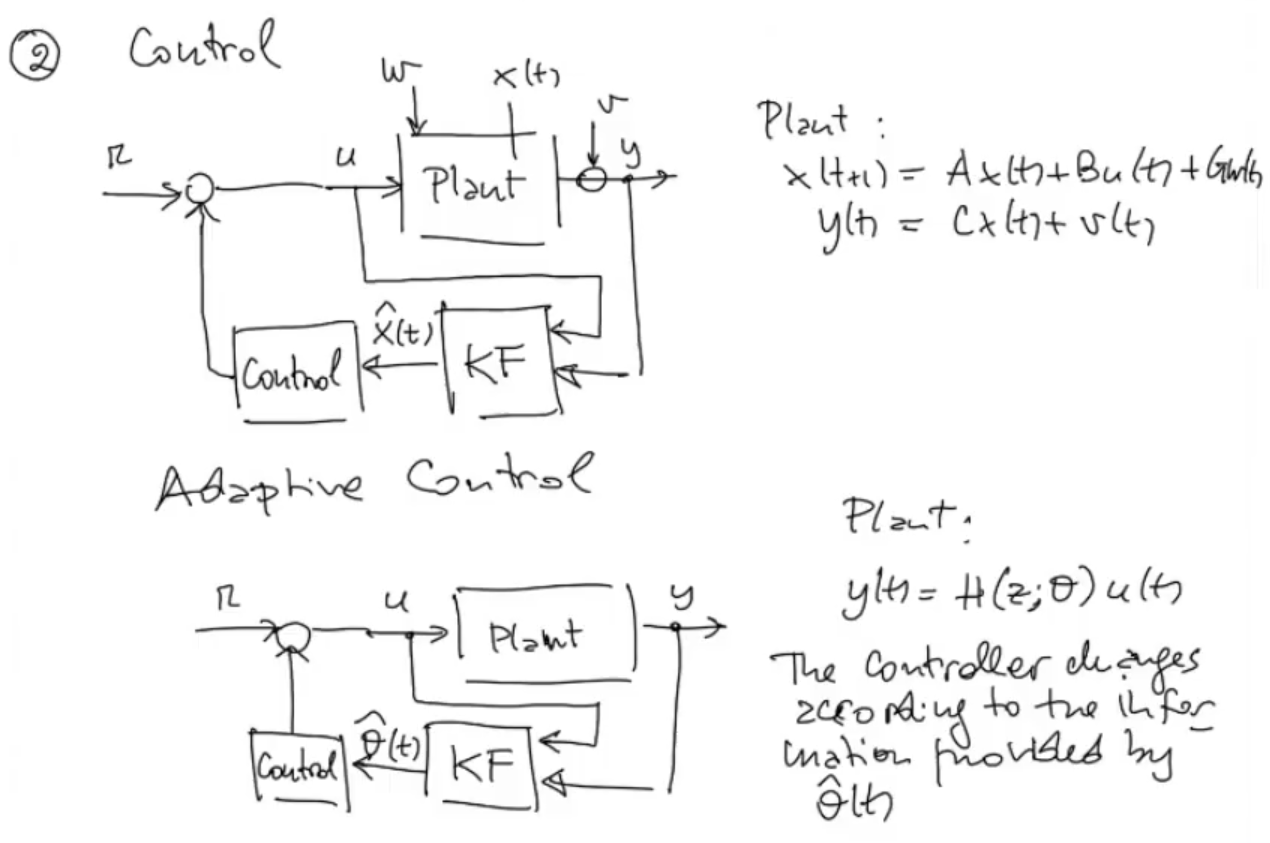 ② Control
w
x(t)
v
r
u
Plant
y
x̂(t)
KF
Control
Plant:
x(t+1) = Ax(t)+Bu(t)+Gw(t)
y(t) = Cx(t)+v(t)
Adaptive Control
r
u
Plant
y
θ̂(t)
KF
Control
Plant:
y(t) = H(z;θ)u(t)
The controller changes
according to the infor
mation provided by
θ̂(t)